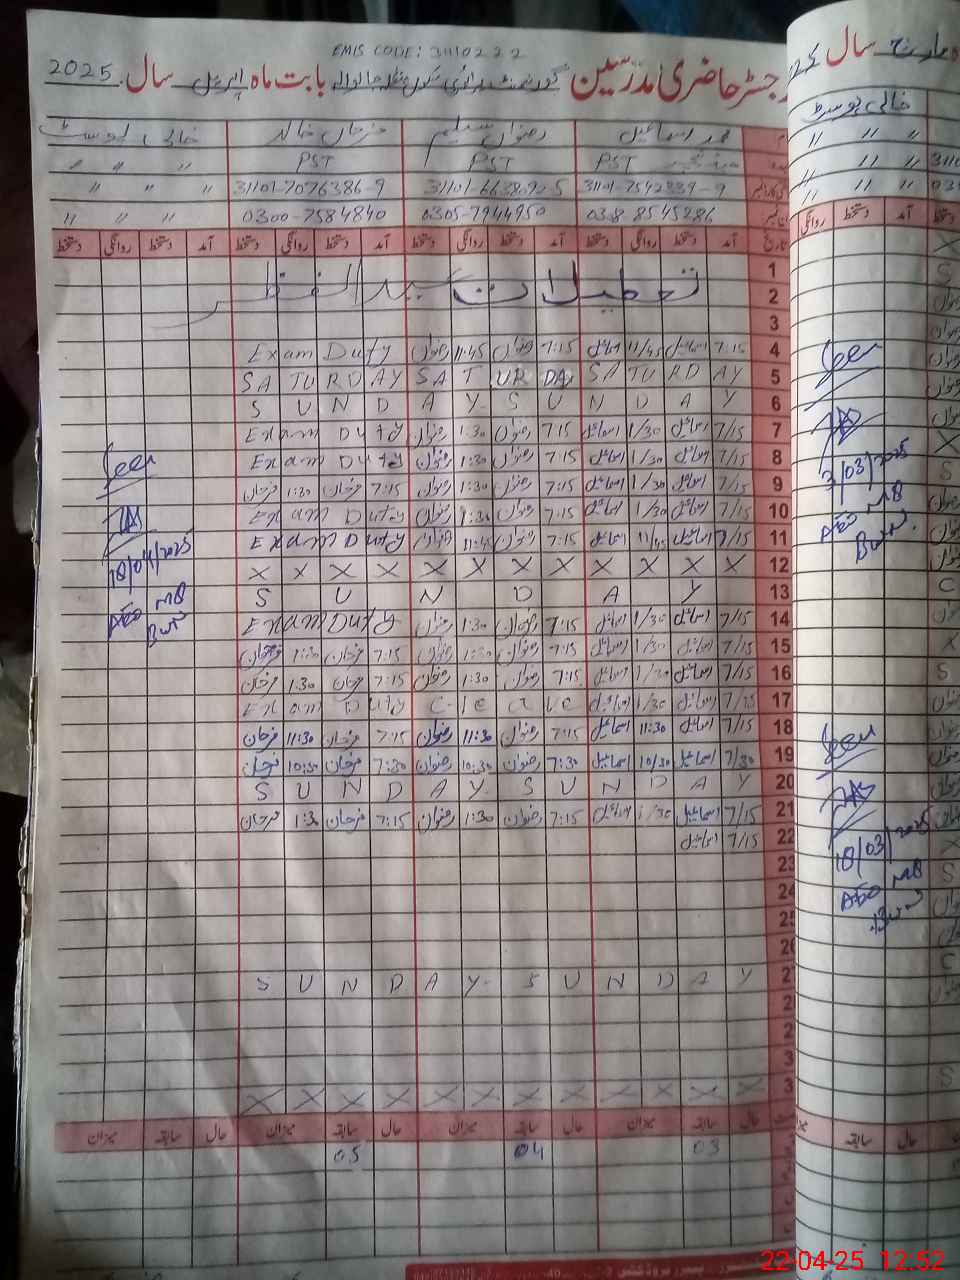 EMIS CODE: 31110222
رجسٹر حاضری مدرسین گورنمنٹ پرائمری سکول بابت ماہ اپریل سال 2025
محمد اسماعیل رضوان سلیم فرحان خالد خالی پوسٹ
PST PST PST 〃 〃 〃
31101-7542339-9 31101-6638090-5 31101-7076386-9 〃 〃 〃
0308 8545286 0305-7944950 0300-7584840 〃 〃 〃
تاریخ آمد دستخط روانگی دستخط آمد دستخط روانگی دستخط آمد دستخط روانگی دستخط آمد دستخط روانگی دستخط
1
2 تعطیلات عید الفطر
3
4 7:15 اسماعیل 11/45 اسماعیل 7:15 رضوان 11:45 رضوان Exam Duty
5 SATURDAY SATURDAY
6 SUNDAY SUNDAY
7 7/15 اسماعیل 1/30 اسماعیل 7:15 رضوان 1:30 رضوان Exam Duty
8 7/15 اسماعیل 1/30 اسماعیل 7:15 رضوان 1:30 رضوان Exam Duty
9 7/15 اسماعیل 1/30 اسماعیل 7:15 رضوان 1:30 رضوان 7:15 فرحان 1:30 فرحان
10 7/15 اسماعیل 1/30 اسماعیل 7:15 رضوان 1:30 رضوان Exam Duty
11 7/15 اسماعیل 11/45 اسماعیل 7:15 رضوان 11:45 رضوان Exam Duty
12 X X X X X X X X X X X X
13 SUNDAY
14 7/15 اسماعیل 1/30 اسماعیل 7:15 رضوان 1:30 رضوان Exam Duty
15 7/15 اسماعیل 1/30 اسماعیل 7:15 رضوان 1:30 رضوان 7:15 فرحان 1:30 فرحان
16 7/15 اسماعیل 1/30 اسماعیل 7:15 رضوان 1:30 رضوان 7:15 فرحان 1:30 فرحان
17 7/15 اسماعیل 1/30 اسماعیل Exam Duty
18 7/15 اسماعیل 11:30 اسماعیل 7:15 رضوان 11:30 رضوان 7:15 فرحان 11:30 فرحان
19 7/30 اسماعیل 10/30 اسماعیل 7:30 رضوان 10:30 رضوان 7:30 فرحان 10:30 فرحان
20 SUNDAY SUNDAY
21 7/15 اسماعیل 1/30 اسماعیل 7:15 رضوان 1:30 رضوان 7:15 فرحان 1:3 فرحان
22 7/15 اسماعیل
23
24
25
2
2 SUNDAY SUNDAY
2
2
3
3 X X X X X X X X X X X X
حال سابقہ میزان حال سابقہ میزان حال سابقہ میزان حال سابقہ میزان
03 04 05
Seen
18/04/2025
AEO MB
BWN
مارچ سال
خالی پوسٹ
〃 〃 〃
〃 〃 〃
〃 〃 〃
آمد دستخط روانگی
Seen
3/03/2025
AEO MB
BWN
Seen
18/03/2025
AEO MB
BWN
حال سابقہ میزان
22-04-25 12:52